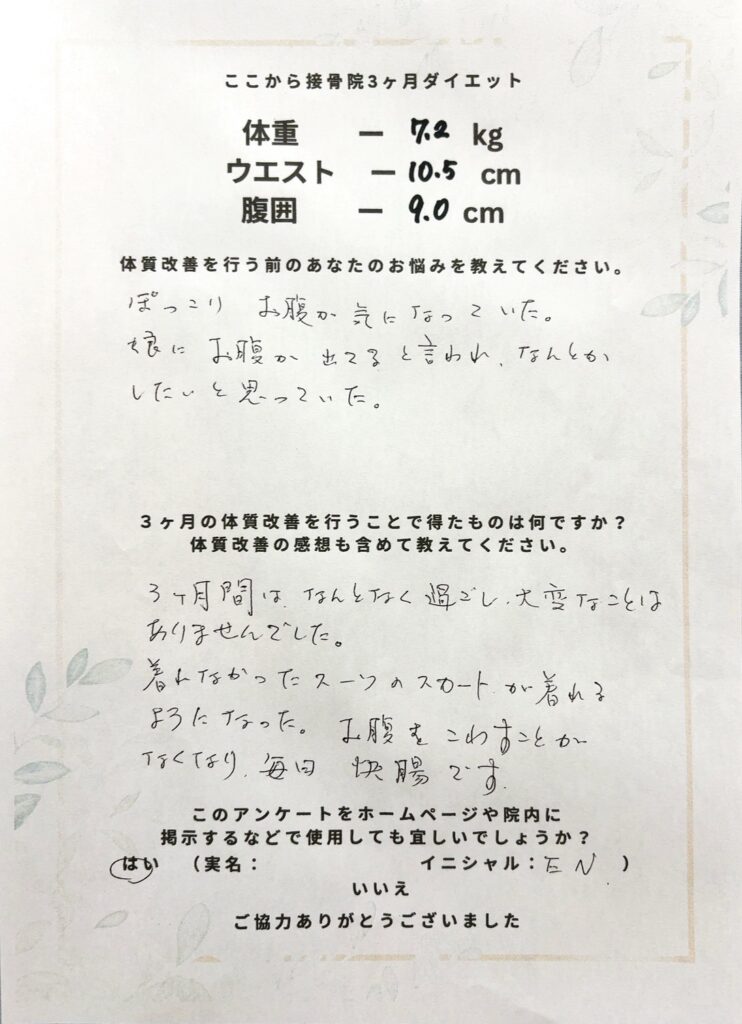 ここから接骨院3ヶ月ダイエット
体重 ー 7.2 kg
ウエスト ー 10.5 cm
腹囲 ー 9.0 cm
体質改善を行う前のあなたのお悩みを教えてください。
ぽっこり お腹が気になっていた。
娘に お腹が 出てる と言われ、なんとか
したいと思っていた。
３ヶ月の体質改善を行うことで得たものは何ですか？
体質改善の感想も含めて教えてください。
3ヶ月間は、なんとなく過ごし、大変なことは
ありませんでした。
着れなかったスーツのスカートが着れる
ようになった。 お腹をこわすことが
なくなり、毎日 快腸です。
このアンケートをホームページや院内に
掲示するなどで使用しても宜しいでしょうか？
はい （実名： イニシャル：E N ）
いいえ
ご協力ありがとうございました